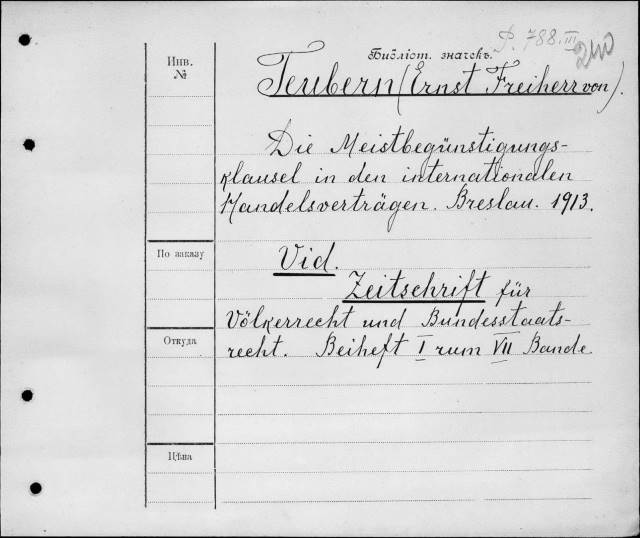 P. 788. III
Инв.
№
Библіот. значекъ.
Teubern (Ernst Freiherr von).
Die Meistbegünstigungs-
klausel in den internationalen
Handelsverträgen. Breslau. 1913.
По заказу
Vid.
Zeitschrift für
Völkerrecht und Bundesstaats-
Откуда
recht. Beiheft I zum VII Bande
Цѣна